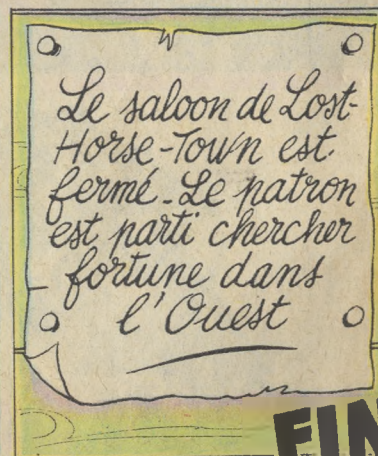 Le saloon de Lost-
Horse-Town est
fermé - Le patron
est parti chercher
fortune dans
l'Ouest
FIN